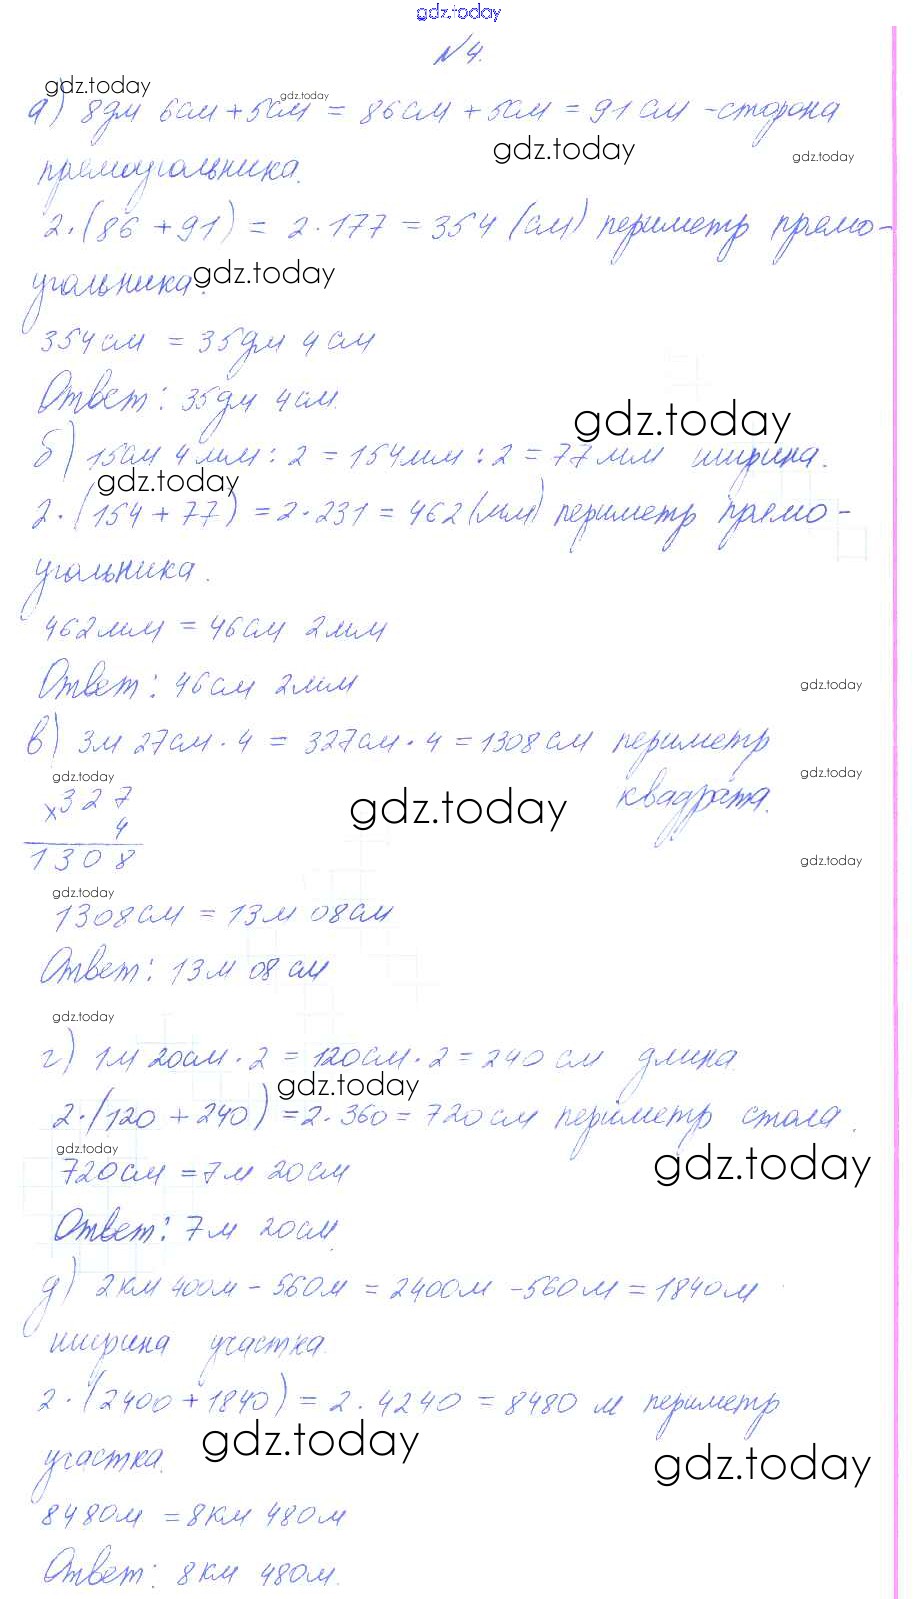 gdz.today
№4.
gdz.today
gdz.today
а) 8дм 6см + 5см = 86см + 5см = 91 см - сторона
gdz.today
gdz.today
прямоугольника.
2·(86 + 91) = 2·177 = 354 (см) периметр прямо-
gdz.today
угольника.
354см = 35дм 4см
Ответ: 35дм 4см.
gdz.today
б) 15см 4мм : 2 = 154мм : 2 = 77мм ширина.
gdz.today
2·(154 + 77) = 2·231 = 462(мм) периметр прямо-
угольника.
462мм = 46см 2мм
Ответ: 46см 2мм
gdz.today
в) 3м 27см · 4 = 327см · 4 = 1308см периметр
gdz.today
gdz.today
× 327
квадрата.
gdz.today
4
1308
gdz.today
gdz.today
1308см = 13м 08см
Ответ: 13м 08см
gdz.today
г) 1м 20см · 2 = 120см · 2 = 240 см длина.
gdz.today
2·(120 + 240) = 2·360 = 720см периметр стола.
gdz.today
gdz.today
720см = 7м 20см
Ответ: 7м 20см.
д) 2км 400м - 560м = 2400м - 560м = 1840м
ширина участка.
2·(2400 + 1840) = 2·4240 = 8480 м периметр
gdz.today
участка.
gdz.today
8480м = 8км 480м
Ответ: 8км 480м.